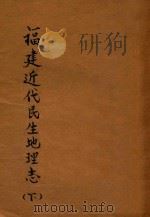 福建近代民生地理志
(下)